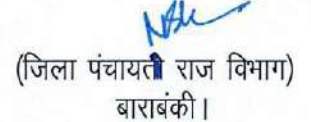 (जिला पंचायती राज विभाग)
बाराबंकी।